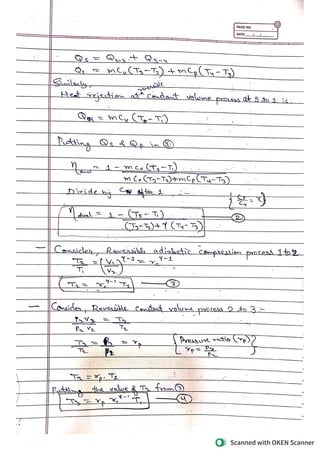 PAGE NO.
DATE
Qs = Q2-3 + Q3-4
Qs = mCv (T3-T2) + mCp (T4-T3)
Similarly,
Heat rejection at reversible Constant volume process at 5 to 1 is.
QR = mCv (T5-T1)
Putting Qs & QR in
η = 1 - mCv (T5-T1)
mCv (T3-T2) + mCp (T4-T3)
Divide by
{ Cp/Cv = γ }
η dual = 1 - (T5-T1)
(T3-T2) + γ (T4-T3)
②
- Consider, Reversible adiabatic compression process 1 to 2
T2/T1 = (V1/V2)^γ-1 = rc^γ-1
T2 = rc^γ-1 T1 - ③
- Consider, Reversible constant volume process 2 to 3 :-
P3 V3 / P2 V2 = T3 / T2
T3/T2 = P3/P2 = rp
{ Pressure ratio (rp) }
rp = P3/P2
T3 = rp. T2
Putting the value of T2 from ③
T3 = rp rc^γ-1 T1 - ④
Scanned with OKEN Scanner